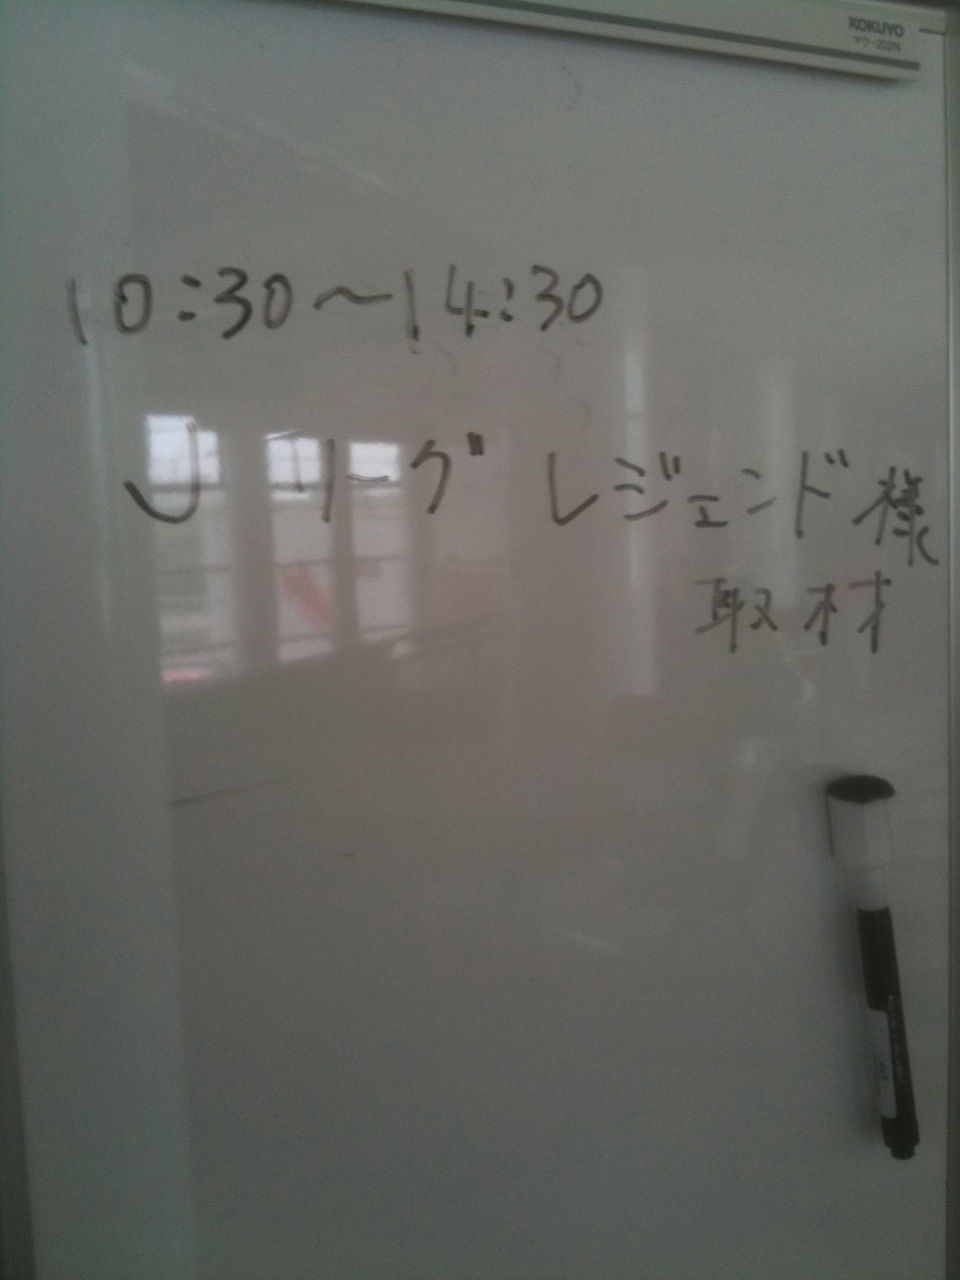 KOKUYO
マク-202N
10:30〜14:30
Jリーグ レジェンド様
取材